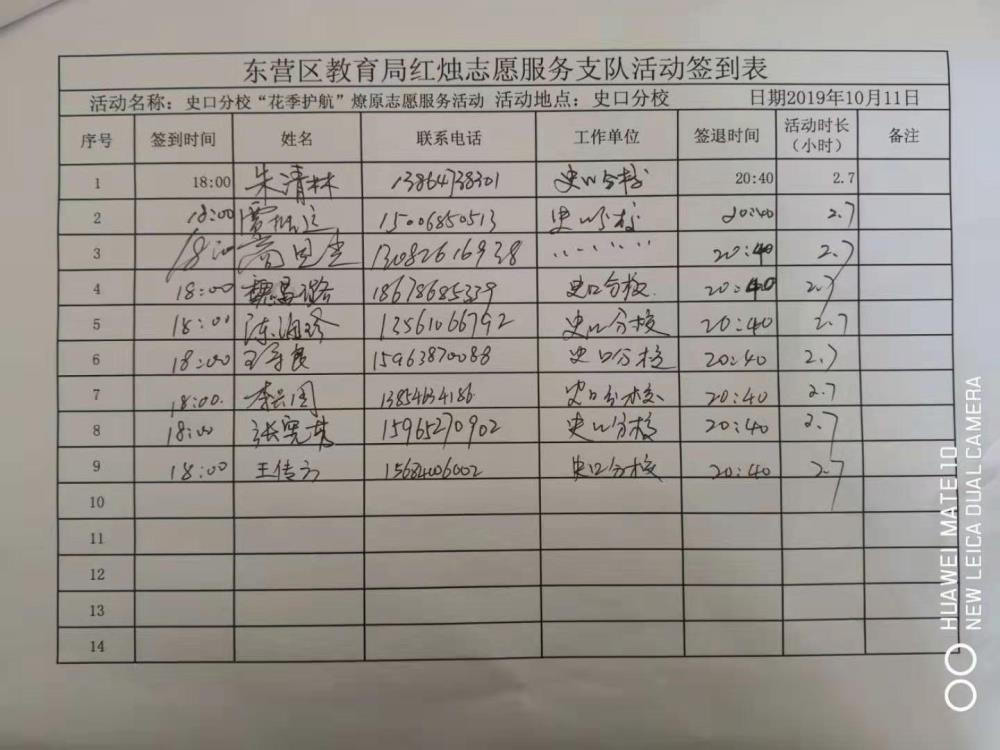 东营区教育局红烛志愿服务支队活动签到表
活动名称：史口分校“花季护航”燎原志愿服务活动 活动地点：史口分校 日期2019年10月11日
序号 签到时间 姓名 联系电话 工作单位 签退时间 活动时长（小时） 备注
1 18:00 朱清林 13864738301 史口分校 20:40 2.7
2 18:00 15006850513 史口分校 20:40 2.7
3 18:00 13082616938 〃 20:40 2.7
4 18:00 魏昌璐 18678685339 史口分校 20:40 2.7
5 18:00 陈湘珍 13561066792 史口分校 20:40 2.7
6 18:00 15963870088 史口分校 20:40 2.7
7 18:00. 李兴国 13854634186 史口分校 20:40 2.7
8 18:00 张宪慧 15965270902 史口分校 20:40 2.7
9 18:00 王传方 15684006002 史口分校 20:40 2.7
10
11
12
13
14
HUAWEI MATE 10
NEW LEICA DUAL CAMERA